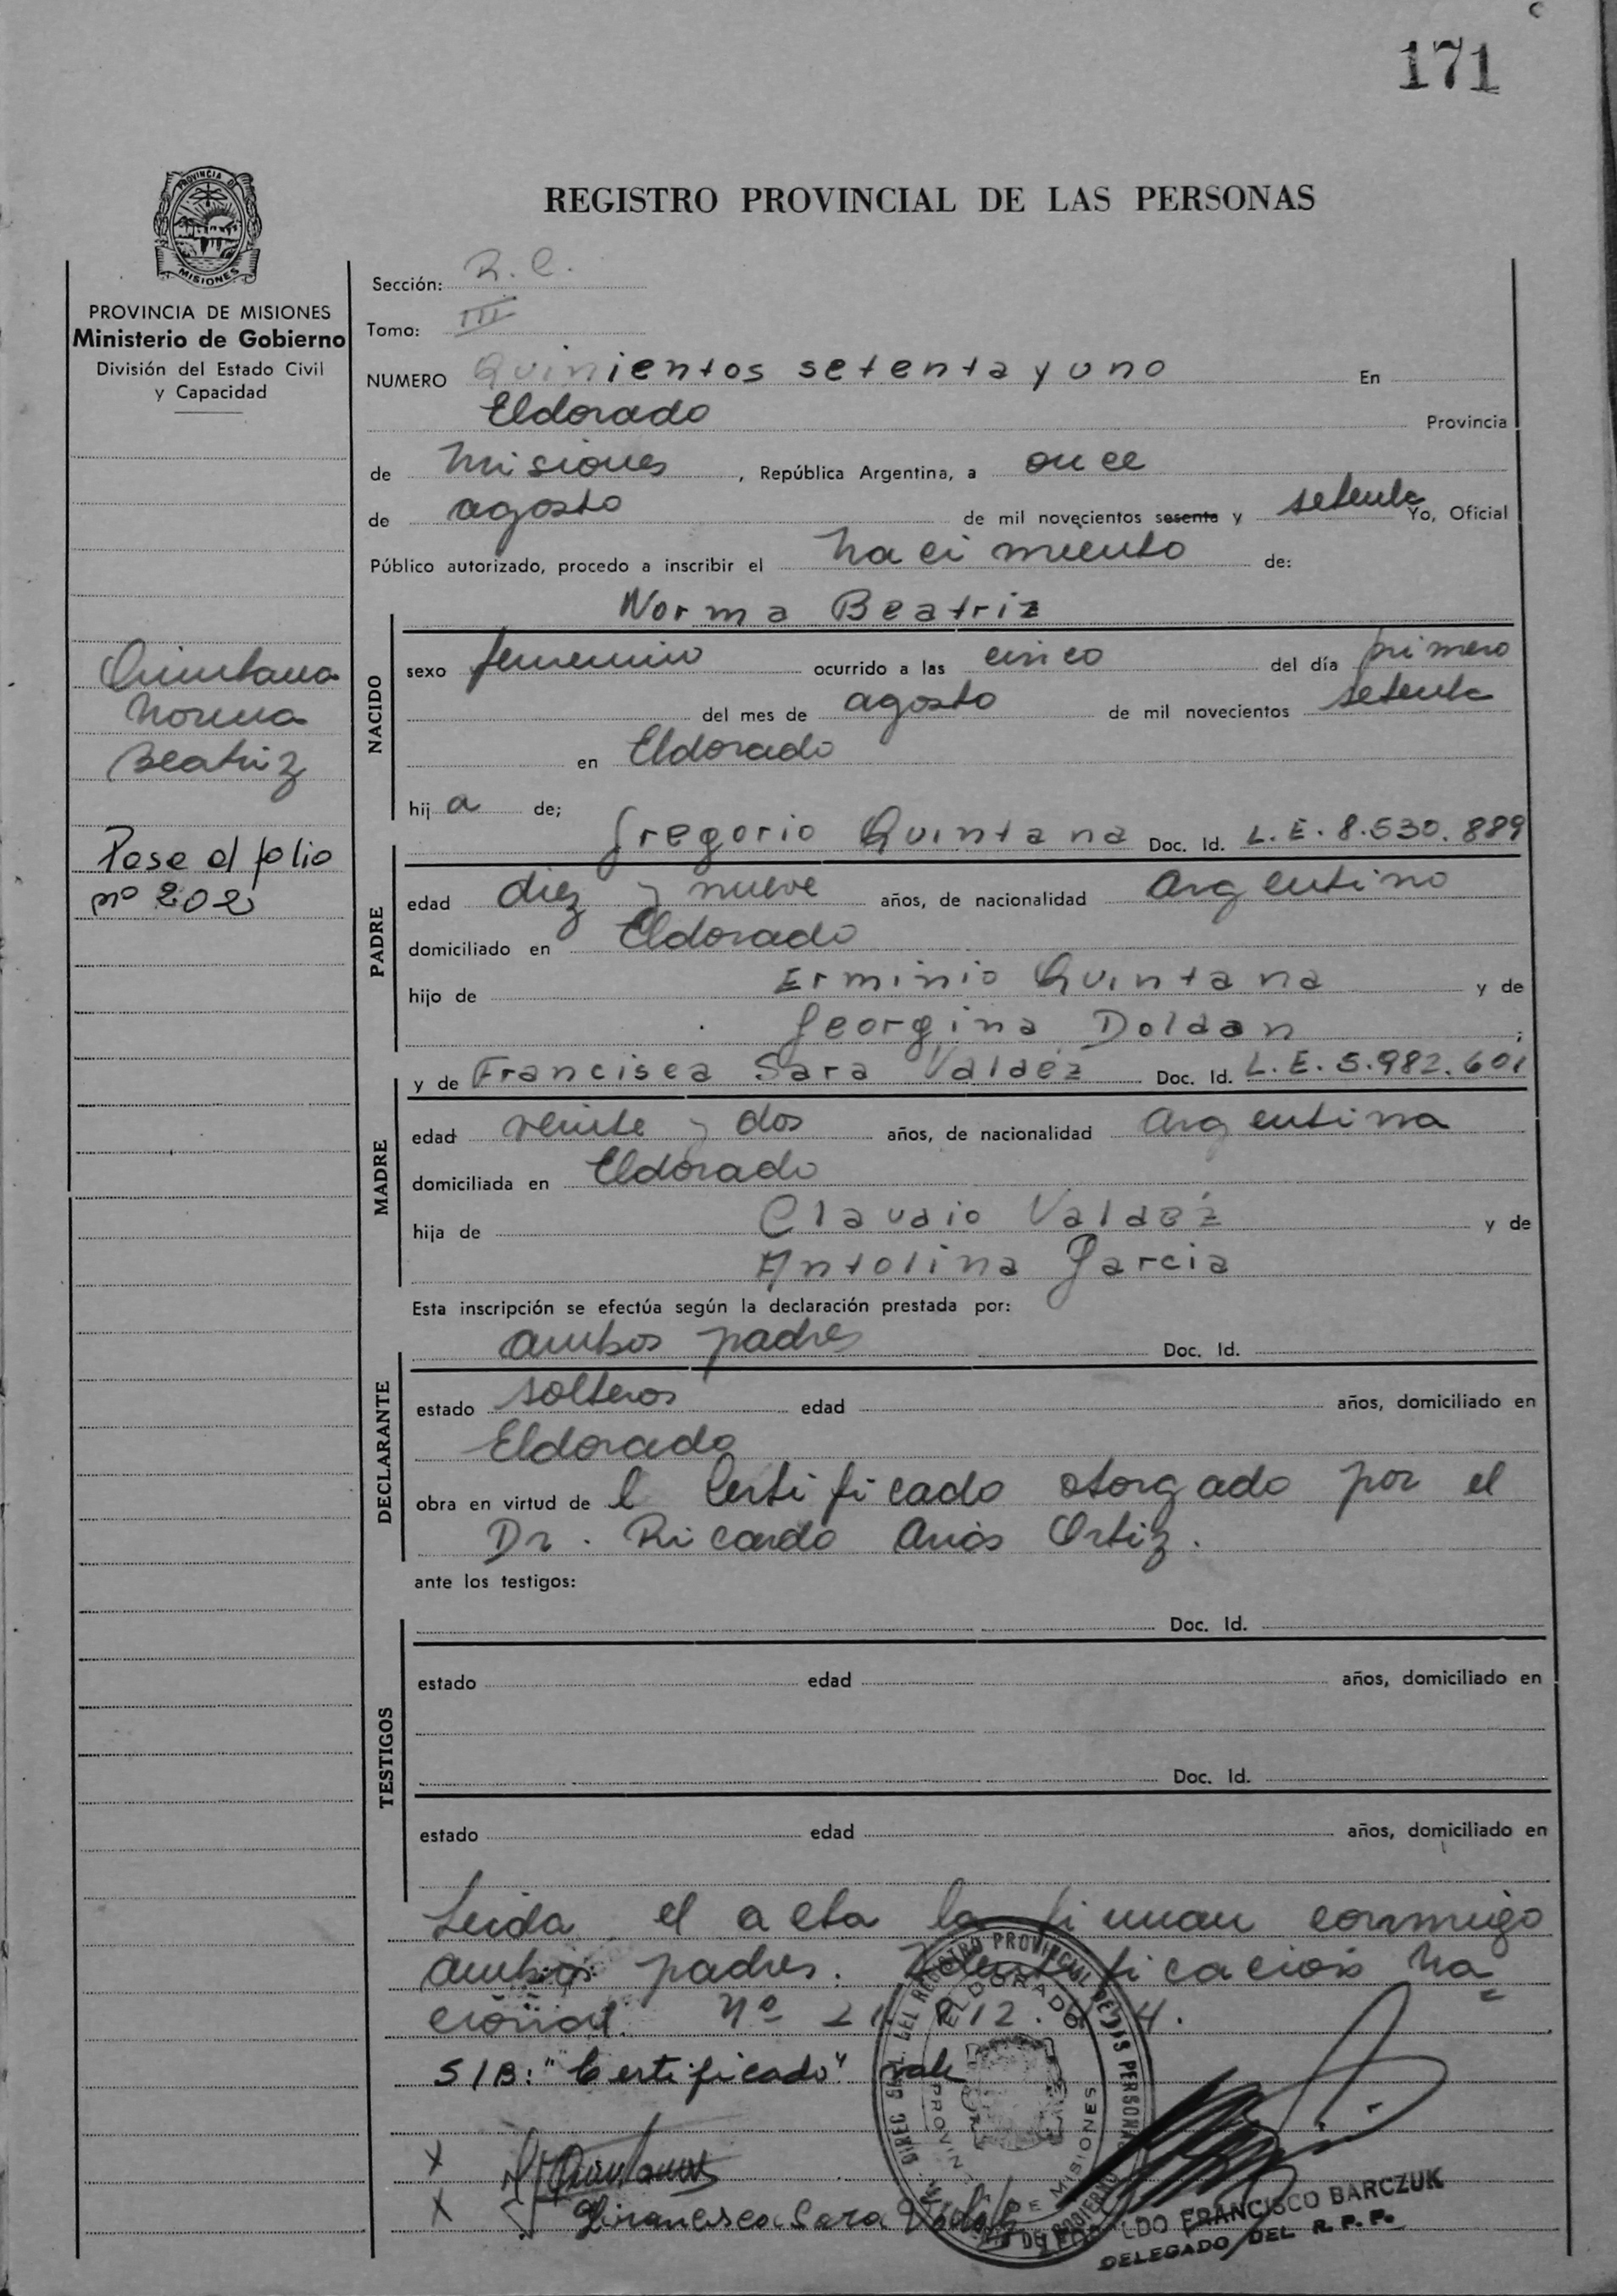 171
PROVINCIA DE
MISIONES
REGISTRO PROVINCIAL DE LAS PERSONAS
PROVINCIA DE MISIONES
Ministerio de Gobierno
División del Estado Civil
y Capacidad
Quintana
Norma
Beatriz
Pase al folio
nº 202
Sección: R. C.
Tomo: III
NUMERO Quinientos setenta y uno En
Eldorado Provincia
de Misiones, República Argentina, a once
de agosto de mil novecientos sesenta y setenta Yo, Oficial
Público autorizado, procedo a inscribir el nacimiento de:
Norma Beatriz
NACIDO
sexo femenino ocurrido a las cinco del día primero
del mes de agosto de mil novecientos setenta
en Eldorado
hij a de;
Gregorio Quintana Doc. Id. L. E. 8.530.889
PADRE
edad diez y nueve años, de nacionalidad Argentino
domiciliado en Eldorado
hijo de Erminio Quintana y de
Georgina Doldan ;
y de Francisca Sara Valdéz Doc. Id. L. E. 5.982.601
MADRE
edad veinte y dos años, de nacionalidad Argentina
domiciliada en Eldorado
hija de Claudio Valdéz y de
Antolina Garcia
Esta inscripción se efectúa según la declaración prestada por:
ambos padres Doc. Id.
DECLARANTE
estado solteros edad años, domiciliado en
Eldorado
obra en virtud de l Certificado otorgado por el
Dr. Ricardo Ortiz.
ante los testigos:
Doc. Id.
TESTIGOS
estado edad años, domiciliado en
Doc. Id.
estado edad años, domiciliado en
Leida el acta la firman conmigo
ambos padres. Identificación Na=
cional. Nº
S/B: "Certificado" vale
X Quintana
X Francisca Sara Valdéz
REGISTRO PROVINCIAL DE LAS PERSONAS
ELDORADO
DE MISIONES
FRANCISCO BARCZUK
DELEGADO DEL R. P. P.